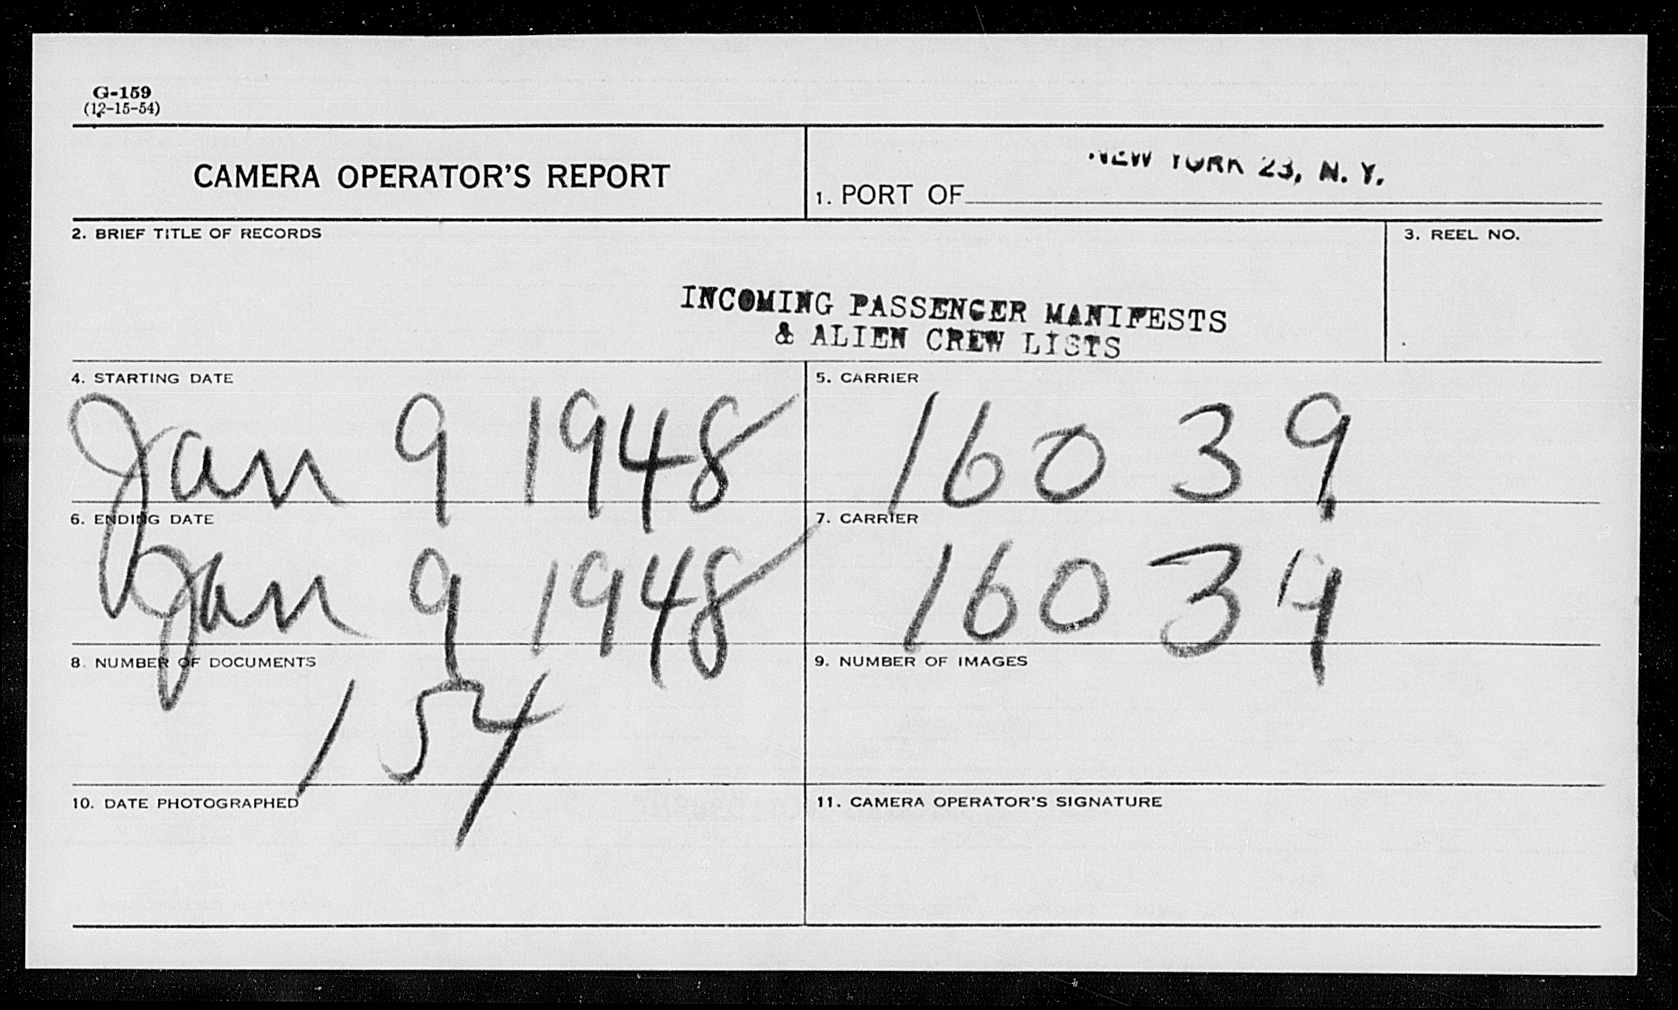 G-159
(12-15-54)
CAMERA OPERATOR'S REPORT
1. PORT OF NEW YORK 23, N. Y.
2. BRIEF TITLE OF RECORDS
3. REEL NO.
INCOMING PASSENGER MANIFESTS
& ALIEN CREW LISTS
4. STARTING DATE
5. CARRIER
Jan 9 1948
16039
6. ENDING DATE
7. CARRIER
Jan 9 1948
16039
8. NUMBER OF DOCUMENTS
9. NUMBER OF IMAGES
154
10. DATE PHOTOGRAPHED
11. CAMERA OPERATOR'S SIGNATURE